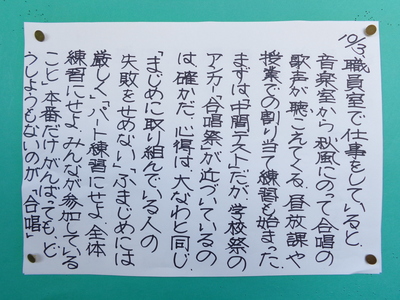 10/3 職員室で仕事をしていると、
音楽室から秋風にのって合唱の
歌声が聴こえてくる。昼放課や
授業での割り当て練習も始まった。
まずは「中間テスト」だが、学校祭の
アンカー「合唱祭」が近づいているの
は、確かだ。心得は、大なわと同じ。
「まじめに取り組んでいる人の
失敗をせめない」「ふまじめには
厳しく」「パート練習にせよ、全体
練習にせよ、みんなが参加している
こと」本番だけがんばっても、ど
うしようもないのが、「合唱」